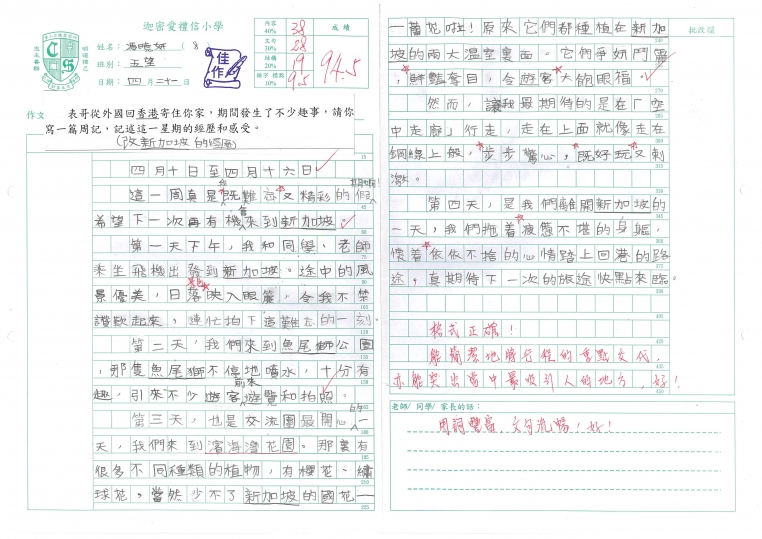 迦密愛禮信小學
姓名: 馮曉妍 ( 8
班別: 五望
日期: 四月二十一日
佳作
內容 40% 38
文句 30% 28
結構 20% 19
錯字 標點 10% 9.5
成績
94.5
作文
表哥從外國回香港寄住你家,期間發生了不少趣事,請你
寫一篇周記,記述這一星期的經歷和感受。
(改新加坡的經歷)
四月十日至四月十六日
這一周真是既難忘又精彩的假
希望下一次再有機會來到新加坡。
第一天下午,我和同學、老師
乘坐飛機出發到新加坡。途中的風
景優美,日落映入眼簾,令我不禁
讚歎起來,連忙拍下這難忘的一刻。
第二天,我們來到魚尾獅公園
,那隻魚尾獅不停地噴水,十分有
趣,引來不少遊客前來遊覽和拍照。
第三天,也是交流團最開心的一
天,我們來到濱海灣花園。那裏有
很多不同種類的植物,有櫻花、繡
球花,當然少不了新加坡的國花—
—蘭花啦!原來它們都種植在新加
坡的兩大溫室裏面。它們爭妍鬥麗
,鮮豔奪目,令遊客大飽眼福。
然而,讓我最期待的是在「空
中走廊」行走,走在上面就像走在
鋼線上般,步步驚心,既好玩又刺
激。
第四天,是我們離開新加坡的
一天,我們拖着疲憊不堪的身軀,
懷着依依不捨的心情踏上回港的路
途,真期待下一次的旅途快點來臨。
格式正確!
能簡潔地將行程的重點交代,
亦能突出當中最吸引人的地方,好!
老師/ 同學/ 家長的話:
用詞豐富,文句流暢,好!
批改欄